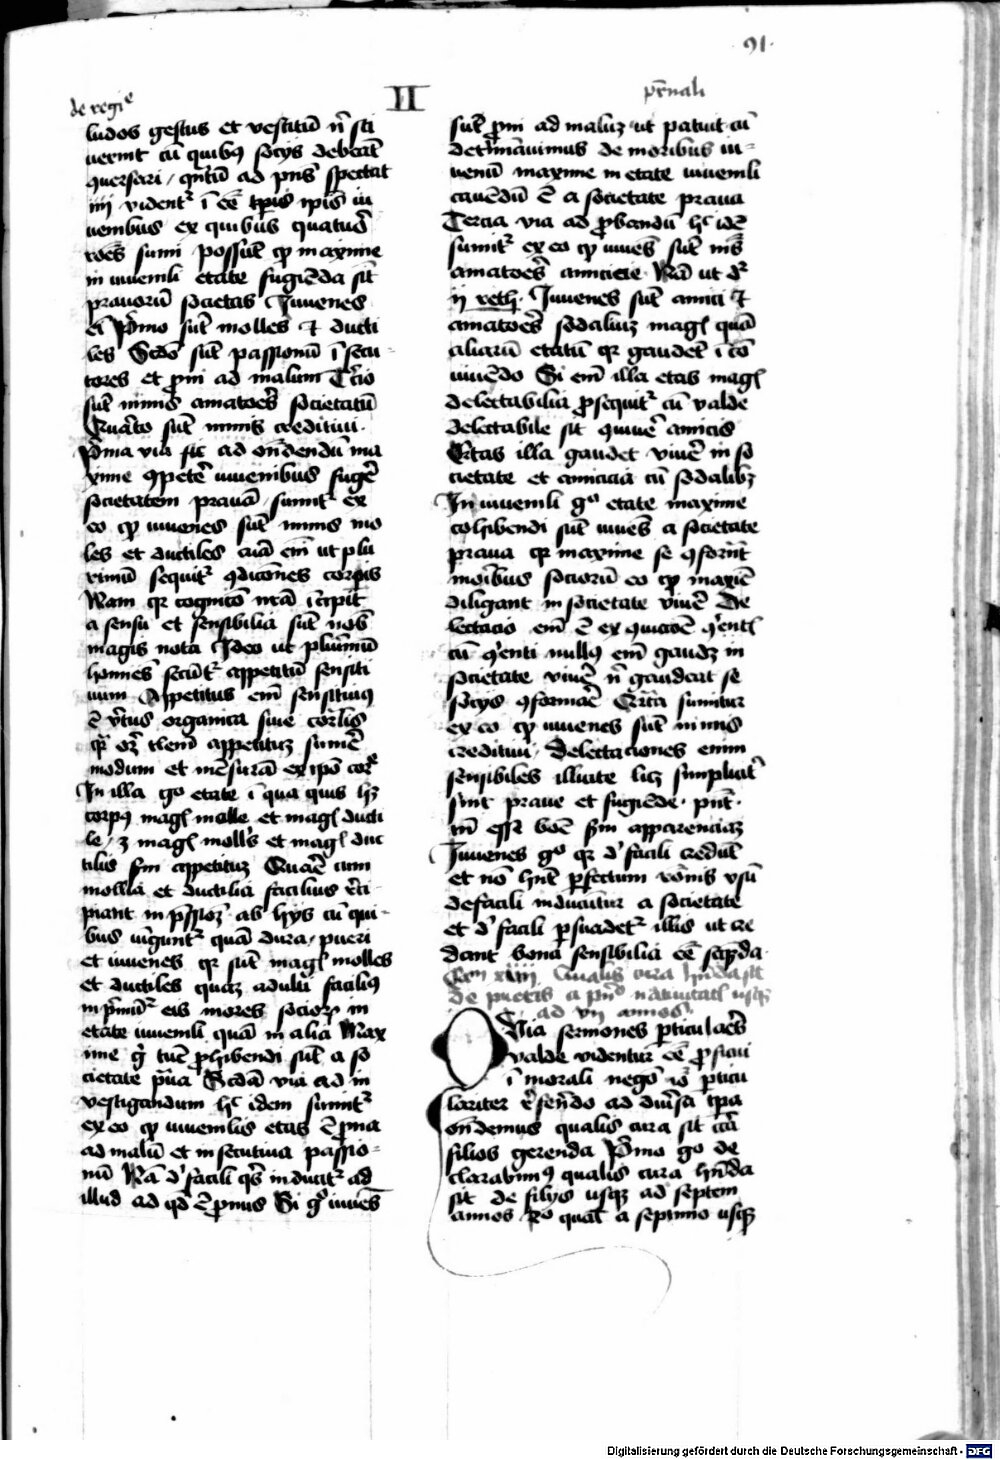 91.
de regie
II
prnali
ludos gestus et vestitū n̄ sci
uerint cū quibꝫ socijs debeāt
ꝯuersari / qntū ad pn̄s spectat
iiij vident̄ ī eē tp̄is ip̄is iu
uenibus ex quibus quatuor
rōes sumi possūt ꝙ maxime
in iuuenili etate fugiēda sit
prauorū societas Iuuenes
ei Pr̄mo sūt molles et ducti
les Scdō sūt passionū īsecu
tores et pro̅ni ad malum Tercio
sūt nimis amatores societatū
Quarto sūt nimis creditiui.
Pr̄ma via sic ad on̄dendū ma
xime ꝯpetere iuuenibus fugere
societatem prauā sumit̄ ex
eo ꝙ iuuenes sūt nimis mo
les et ductiles aiā em̄ ut plu
rimū sequit̄ ꝯdicōnes corp̄is
Nam qꝛ cognitō nrā īcipit
a sensu et sensibilia sūt nob̄
magis nota Ideo ut plurimū
homines secūt̄ appetitū sensiti
uum Appetitus em̄ sensitiuꝯ
ē v̄tus organica siue cor̄lis
qr̄ oꝫ talem appetitū sumē
modum et mēsurā ex ip̄o cor̄e
In illa go etate ī qua quis hꝫ
corpꝯ maḡ molle et maḡ ducti
le / ꝫ maḡ mollis et maḡ duc
tilis fm̄ appetitū Quaē cum
mollia et ductilia facilius reci
piant in pr̄ssioꝫ ab hijs cū qui
bus iūgunt̄ quā dura / pueri
et iuuenes qꝛ sūt maḡ molles
et ductiles quā adulti facilius
inpr̄mūt̄ eis mores socioꝝ in
etate iuuenili quā in alia Max
ime g̊ tūc prohibendi sūt a so
cietate praua Scdā via ad in
vestigandum hͦ idem sumit̄
ex eo ꝙ iuuenilis etas ē prona
ad malū et insecutiua passio
nū Nā d' facili qͥs inducit̄ ad
illud ad qd̄ ē pronus Si g̊ iuuēs
sūt proni ad malū ut patuit cū
determinauimus de moribus iu
uenū maxime in etate iuuenili
cauēdū ē a societate praua
Tercia via ad probandū hͦ idē
sumit̄ ex eo ꝙ iuuēs sūt nimis
amatores amicicie Nā ut dr̄
ij reth. Iuuenes sūt amici et
amatores sodaliū maḡ quā
aliarū etatū qꝛ gaudēt ī cō
viuēdo Si em̄ illa etas maḡ
delectabilia prosequit̄ cū valde
delectabile sit ꝯuiuē amicis
Etas illa gaudet viuē in so
cietate et amicicia cū sodalibꝫ
In iuuenili go etate maxime
cohibendi sūt iuuēs a societate
praua qꝛ maxime se ꝯformāt
moribus sociorū eo ꝙ maxie
diligant in societate viuē De
lectacio em̄ ē ex ꝯiunctōe ꝯuenientis
cū ꝯuenienti nullꝯ em̄ gaudꝫ in
societate viuē n̄ gaudeat se
socijs ꝯformaē Quarta sumitur
ex eo ꝙ iuuenes sūt nimis
creditiui / Delectaciones enim
sensibiles illicite licꝫ simplicit̄
sint praue et fugiēde. pn̄t.
tn̄ esse bōe fm̄ apparenciaꝫ
Iuuenes go qꝛ d' facili credūt
et nō hn̄t perfectum rōnis vsū
defacili inducūtur a societate
et d' facili persuadet̄ illis ut cre
dant bona sensibilia eē seq̄nda
Cm̄ xiiij Qualis cura hn̄da sit
de pueris a pr̄o natiuitatis usqꝫ
ad vij annos
Quia sermones perticulares
valde videntur eē proficui
ī morali negō iō perticu
lariter descēdo ad diuersa tp̄a
on̄demus qualis cura sit circa
filios gerenda Pr̄mo go de
clarabimꝯ qualis cura hn̄da
sit de filijs usqꝫ ad septem
annos 2o qual̄ a septimo usqꝫ
Digitalisierung gefördert durch die Deutsche Forschungsgemeinschaft - DFG